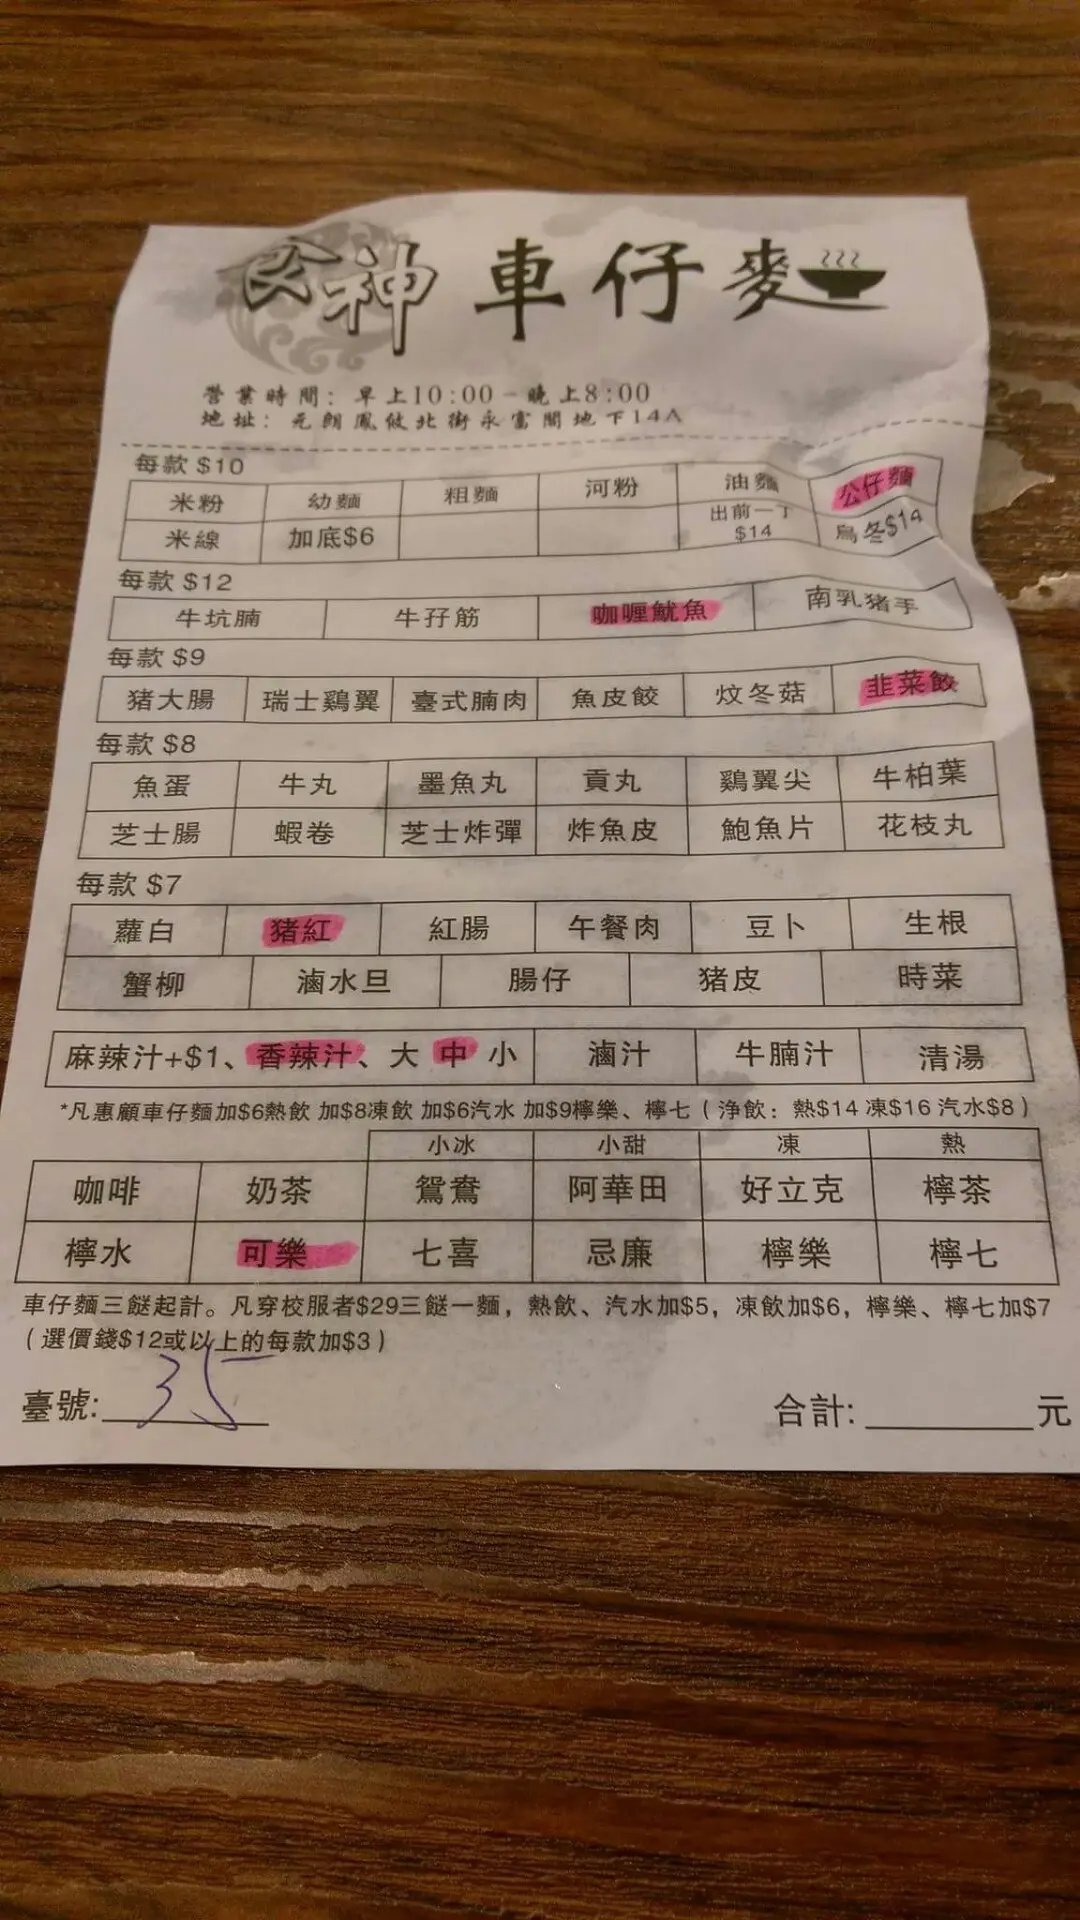 食神 車仔麥
營業時間：早上10:00－晚上8:00
地址：元朗鳳攸北街永富閣地下14A
每款 $10
米粉 幼麵 粗麵 河粉 油麵 公仔麵
米線 加底$6 出前一丁 $14 烏冬$14
每款 $12
牛坑腩 牛孖筋 咖喱魷魚 南乳猪手
每款 $9
猪大腸 瑞士鷄翼 臺式腩肉 魚皮餃 炆冬菇 韭菜餃
每款 $8
魚蛋 牛丸 墨魚丸 貢丸 鷄翼尖 牛柏葉
芝士腸 蝦卷 芝士炸彈 炸魚皮 鮑魚片 花枝丸
每款 $7
蘿白 猪紅 紅腸 午餐肉 豆卜 生根
蟹柳 滷水旦 腸仔 猪皮 時菜
麻辣汁+$1、香辣汁、大 中 小 滷汁 牛腩汁 清湯
*凡惠顧車仔麵加$6熱飲 加$8凍飲 加$6汽水 加$9檸樂、檸七（净飲：熱$14 凍$16 汽水$8）
小冰 小甜 凍 熱
咖啡 奶茶 鴛鴦 阿華田 好立克 檸茶
檸水 可樂 七喜 忌廉 檸樂 檸七
車仔麵三餸起計。凡穿校服者$29三餸一麵，熱飲、汽水加$5，凍飲加$6，檸樂、檸七加$7
（選價錢$12或以上的每款加$3）
臺號:35 合計: 元